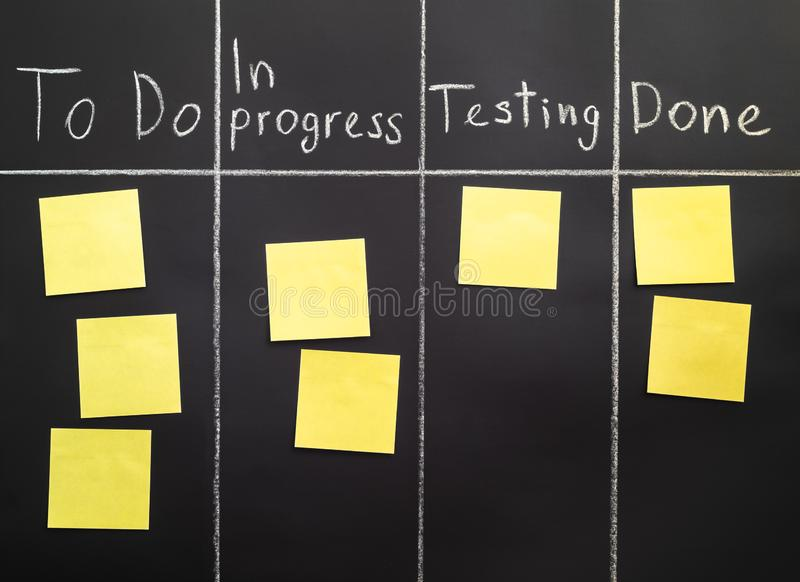 To Do
In
progress
Testing
Done
dreamstime